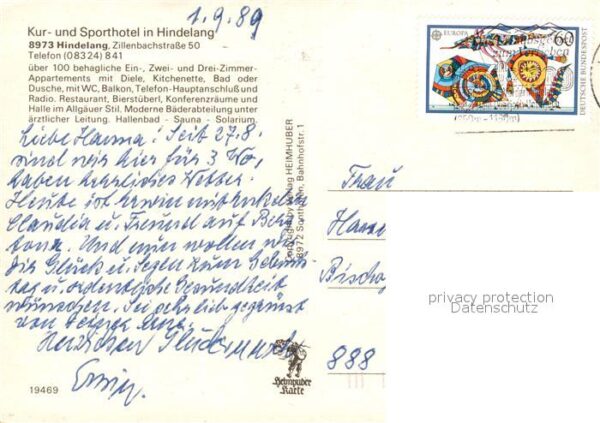 1.9.89
Kur- und Sporthotel in Hindelang
8973 Hindelang, Zillenbachstraße 50
Telefon (08324) 841
über 100 behagliche Ein-, Zwei- und Drei-Zimmer-
Appartements mit Diele, Kitchenette, Bad oder
Dusche, mit WC, Balkon, Telefon-Hauptanschluß und
Radio. Restaurant, Bierstüberl, Konferenzräume und
Halle im Allgäuer Stil. Moderne Bäderabteilung unter
ärztlicher Leitung. Hallenbad - Sauna - Solarium.
Liebe Hanna! Seit 27.8.
sind wir hier für 3 Wo,
haben herrliches Wetter.
Heute ist Erwin mit
Claudia u. Freund auf
Und nun wollen wir
Dir Glück u. Segen zum Geburts-
tag u. ordentliche Gesundheit
wünschen. Sei sehr lieb gegrüsst
von
Herzlichen Glückwunsch
Erwin
19469
Verlag HEIMHUBER
8972 Sonthofen, Bahnhofstr. 1
Heimhuber
Karte
EUROPA
60
DEUTSCHE BUNDESPOST
Frau
Bischo
888
privacy protection
Datenschutz